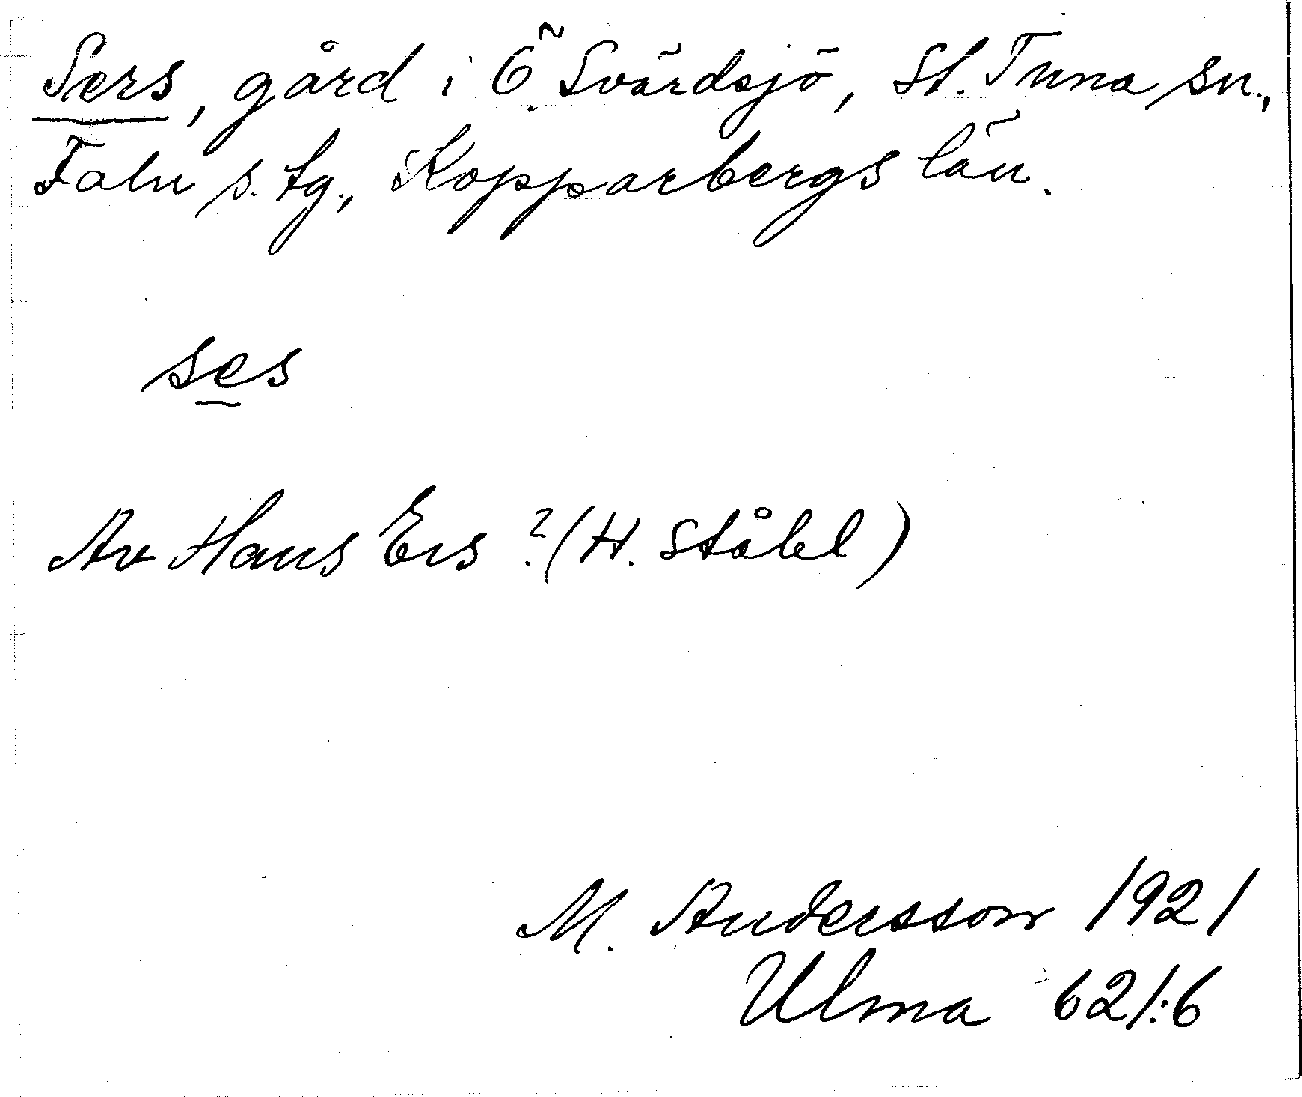 Sers, gård i Ö. Svärdsjö, St. Tuna sn.,
Falu s. tg., Kopparbergs län.
ses
Av Hans Ers ? (H. Ståhl)
M. Andersson 1921
Ulma 621:6